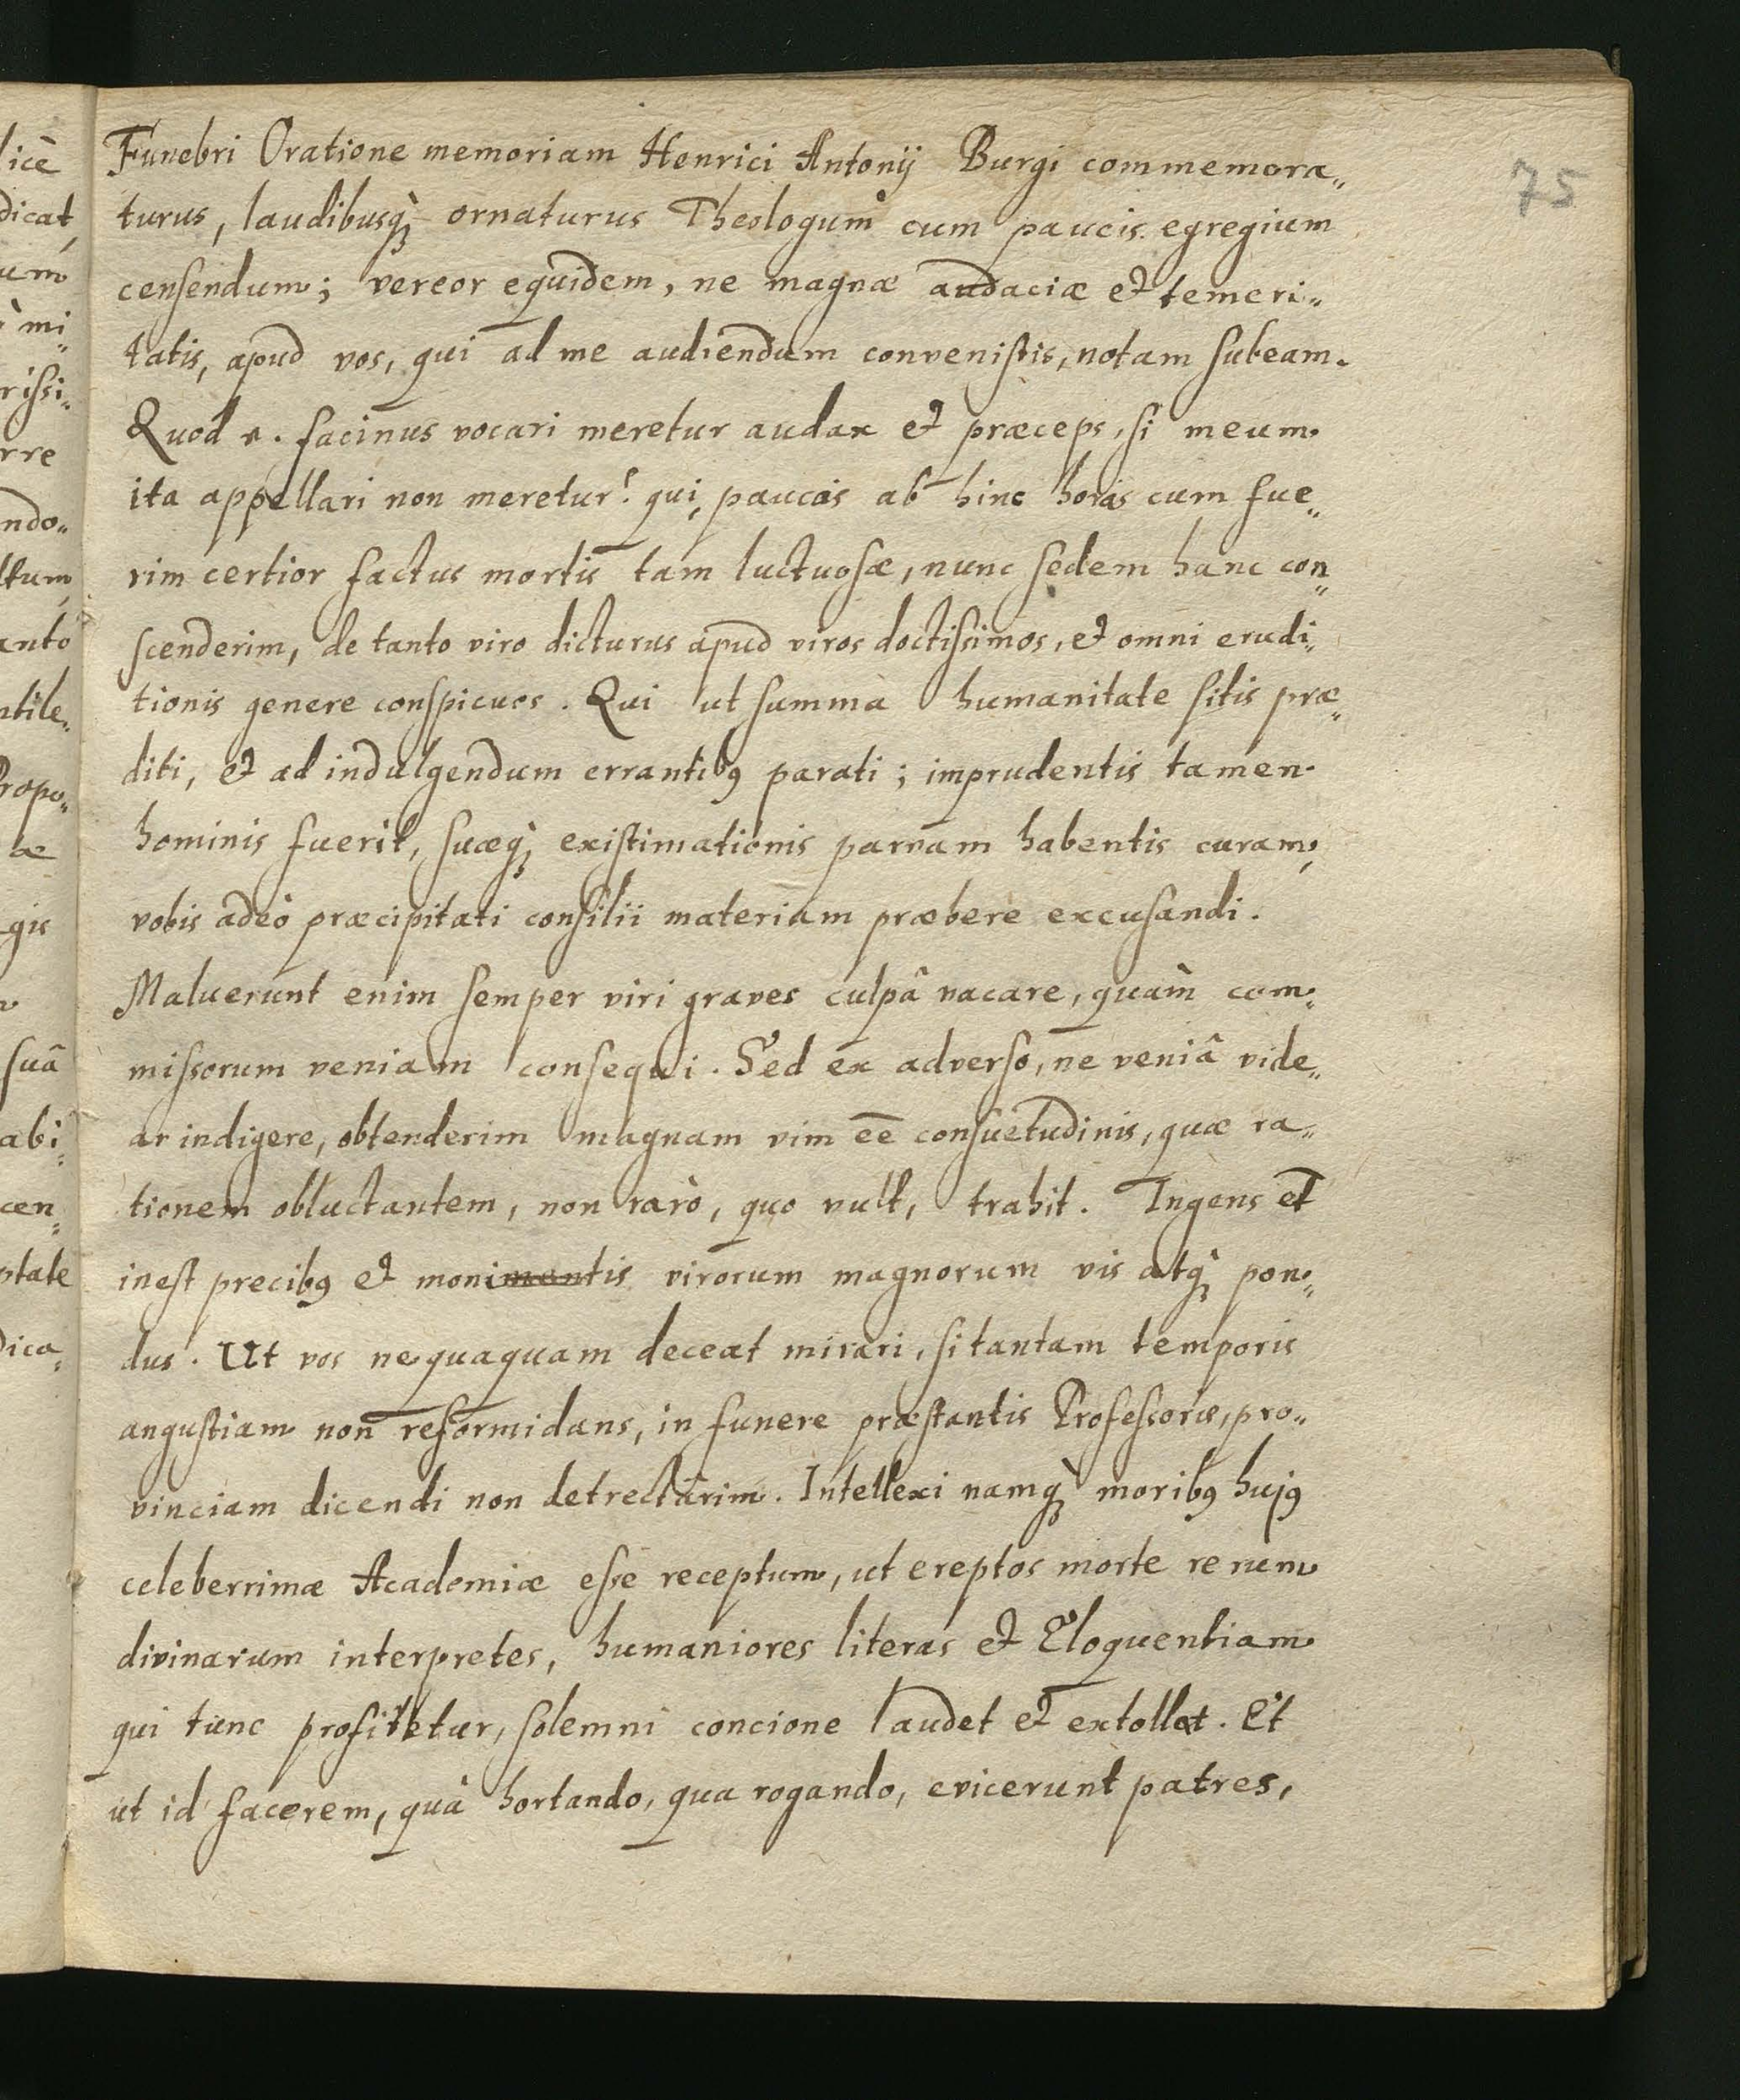 75
Funebri Oratione memoriam Henrici Antonij Burgi commemora„
turus, laudibusq̀ꝫ ornaturus Theologum cum paucis egregium
censendum; vereor equidem, ne magnæ audaciæ et temeri„
tatis, apud vos, qui ad me audiendum convenistis, notam subeam.
Quod n. facinus vocari meretur audax et præceps, si meum
ita appellari non meretur? qui, paucis ab hinc horis cum fue„
rim certior factus mortis tam luctuosæ, nunc sedem hanc con„
scenderim, de tanto viro dicturus apud viros doctissimos, et omni erudi„
tionis genere conspicuos. Qui ut summa humanitate sitis præ„
diti, et ad indulgendum errantibꝰ parati; imprudentis tamen
hominis fuerit, suæq̀ꝫ existimationis parvam habentis curam,
vobis adeò præcipitati consilii materiam præbere excusandi.
Maluerunt enim semper viri graves culpâ vacare, quàm com„
missorum veniam consequi. Sed ex adverso, ne veniâ vide„
ar indigere, obtenderim magnam vim ee̅ consuetudinis, quæ ra„
tionem obluctantem, non rarò, quo vult, trahit. Ingens et
inest precibꝰ et monimentis virorum magnorum vis atq̀ꝫ pon„
dus. Ut vos nequaquam deceat mirari, si tantam temporis
angustiam non reformidans, in funere præstantis Professoris, pro„
vinciam dicendi non detrectarim. Intellexi namq̀ꝫ moribꝰ hujꝰ
celeberrimæ Academiæ esse receptum, ut ereptos morte rerum
divinarum interpretes, humaniores literas et Eloquentiam
qui tunc profitetur, solemni concione laudet et extollat. Et
ut id facerem, quà hortando, qua rogando, evicerunt patres,
licē
dicat,
um
mi„
rissi„
rre
ndo„
ltum,
antò
ntile„
Propo„
æ
gis
suâ
abi„
cen„
ptate
dica„